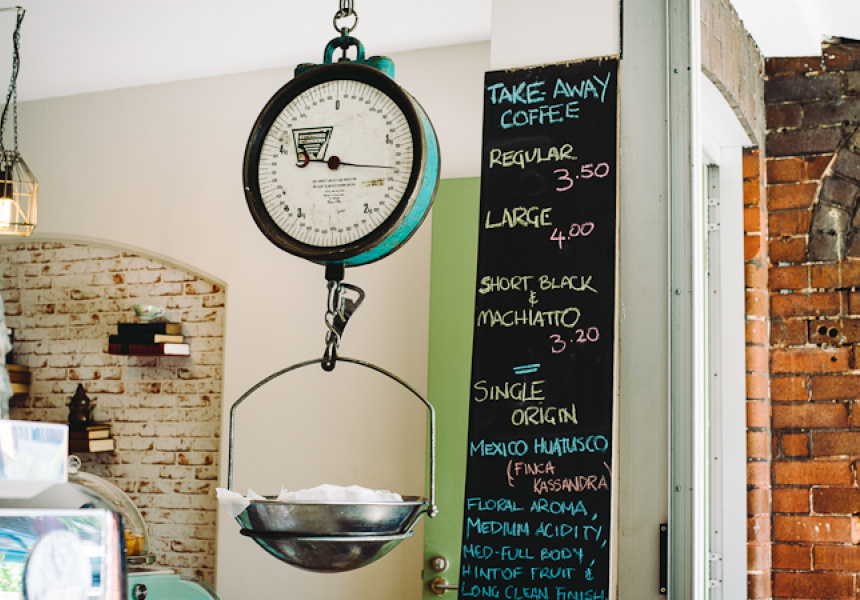 0
1
2
3
4
TAKE-AWAY
COFFEE
REGULAR
3.50
LARGE
4.00
SHORT BLACK
&
MACHIATTO
3.20
SINGLE
ORIGIN
MEXICO HUATUSCO
(FINCA
KASSANDRA)
FLORAL AROMA,
MEDIUM ACIDITY,
MED-FULL BODY,
HINT OF FRUIT &
LONG CLEAN FINISH.